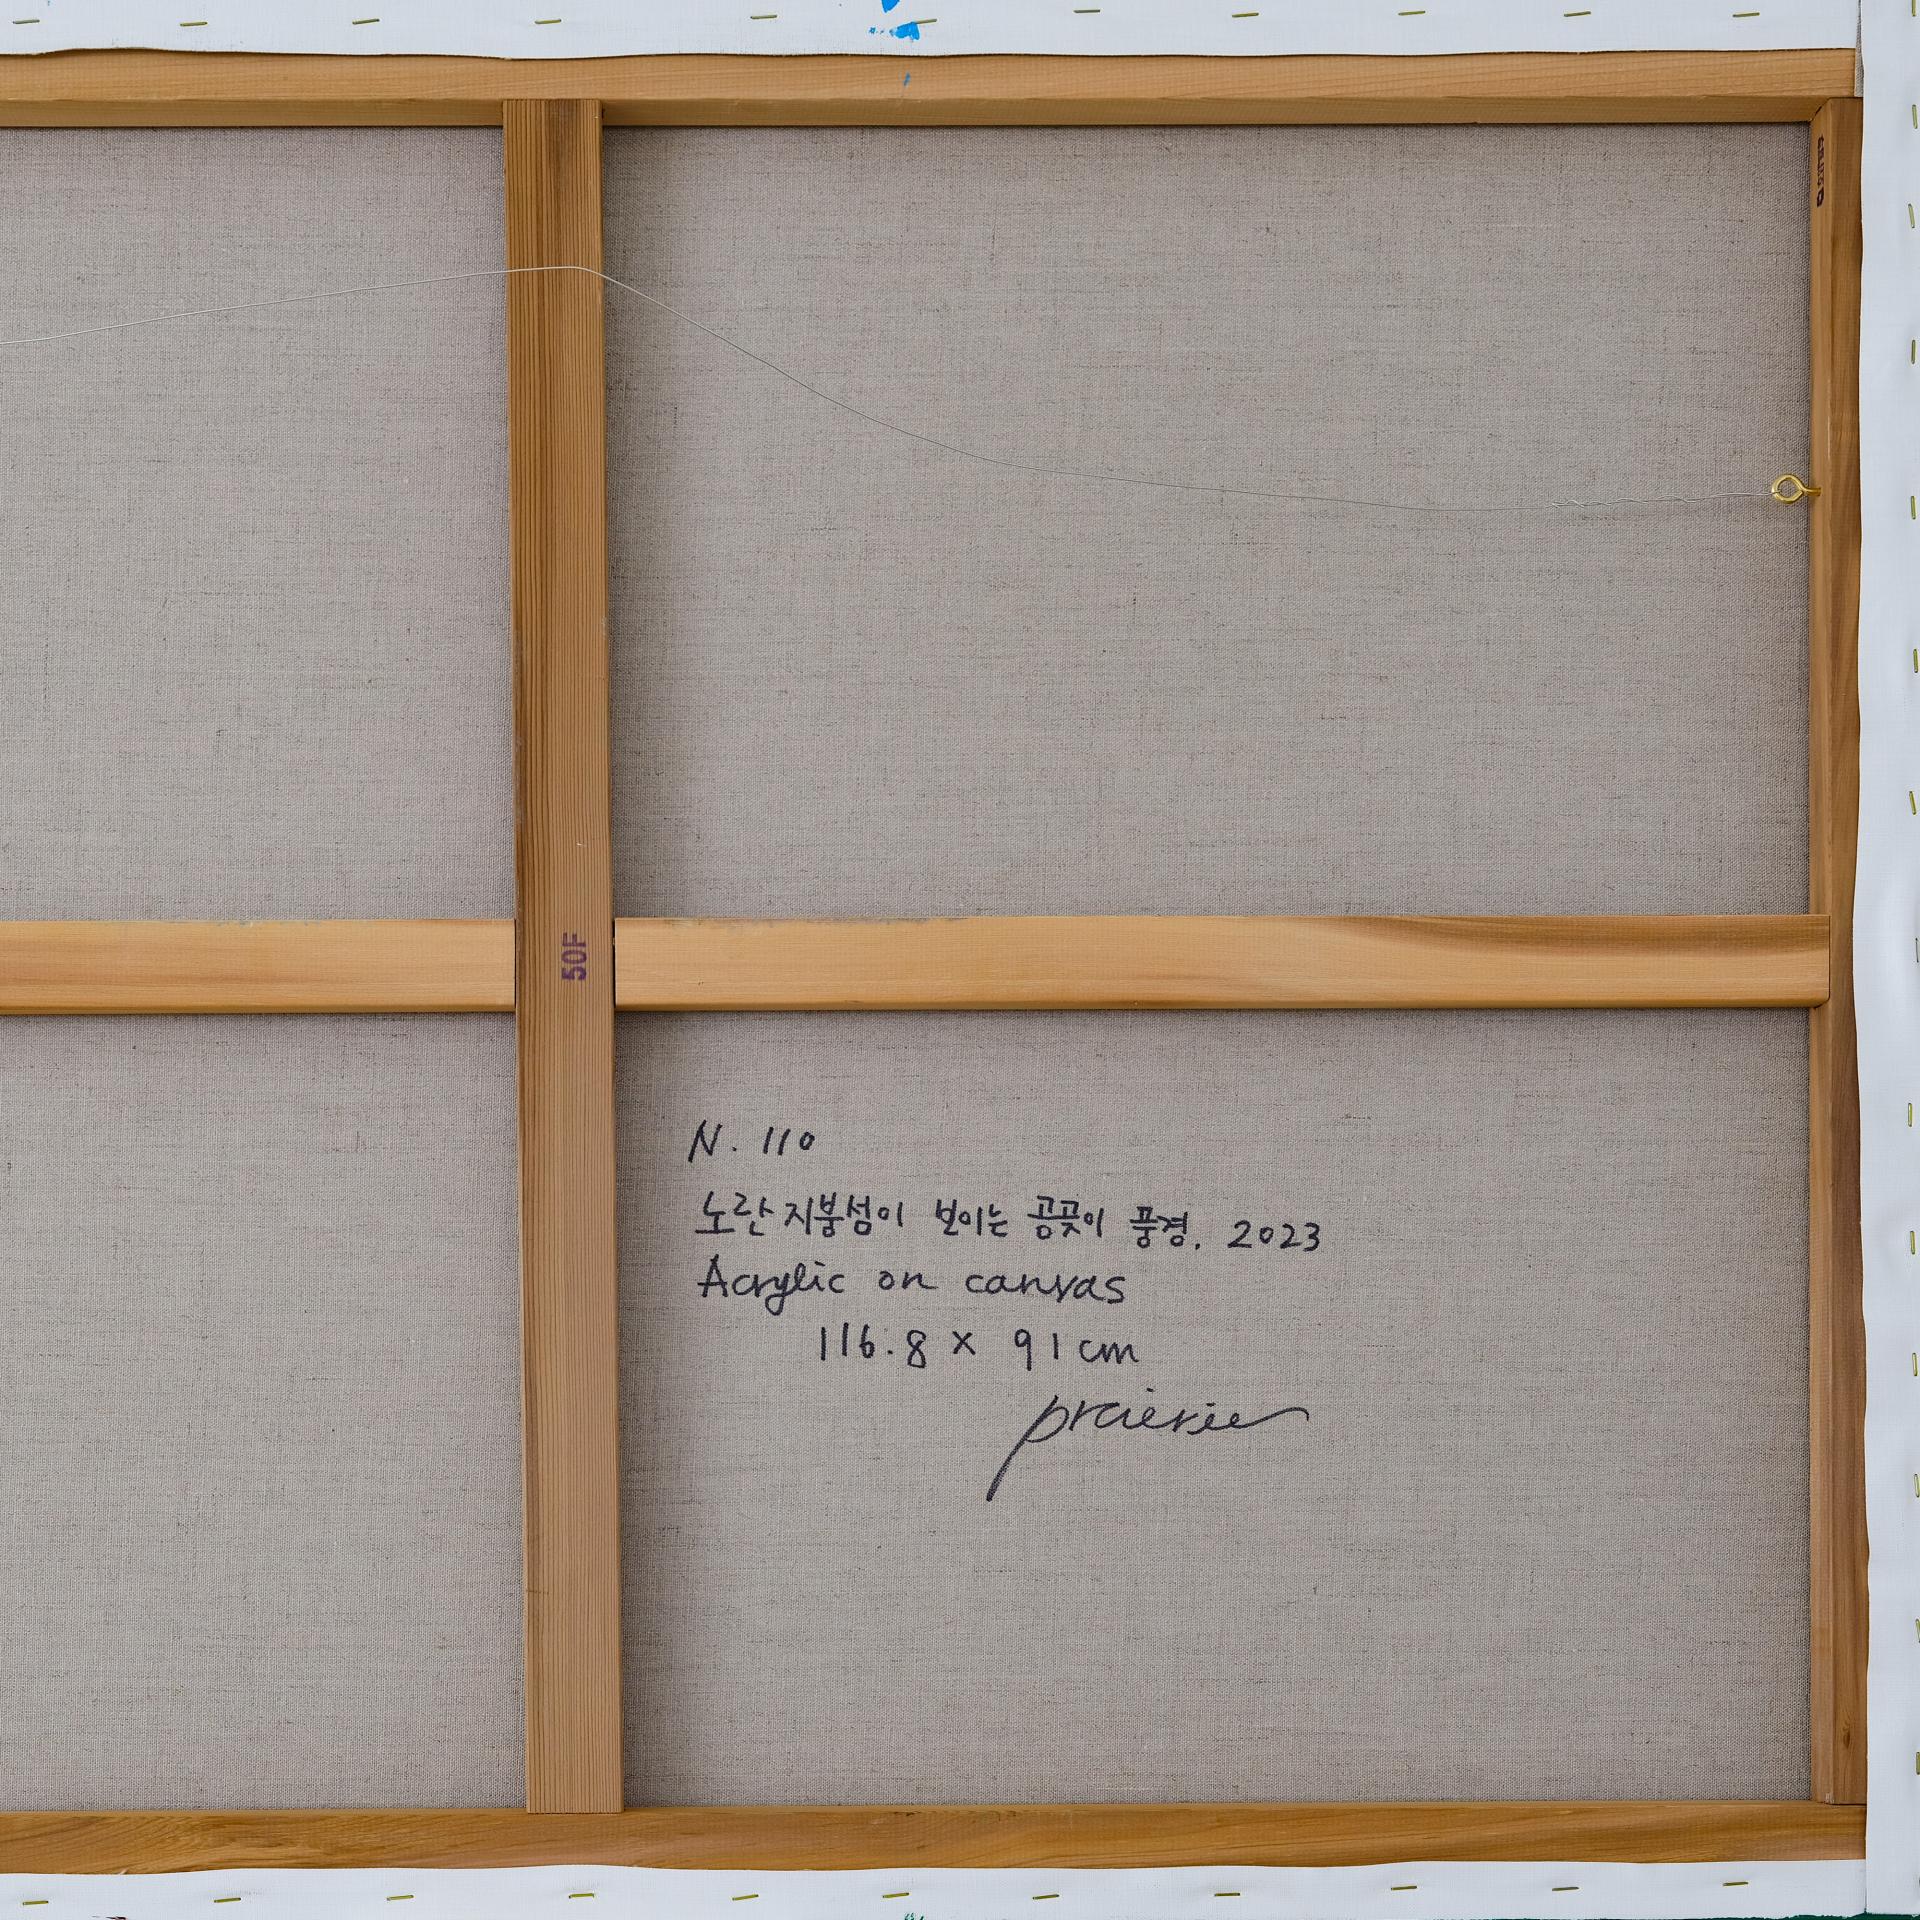 50F
N. 110
노란 지붕섬이 보이는 공곶이 풍경, 2023
Acrylic on canvas
116.8 × 91 cm
prairie